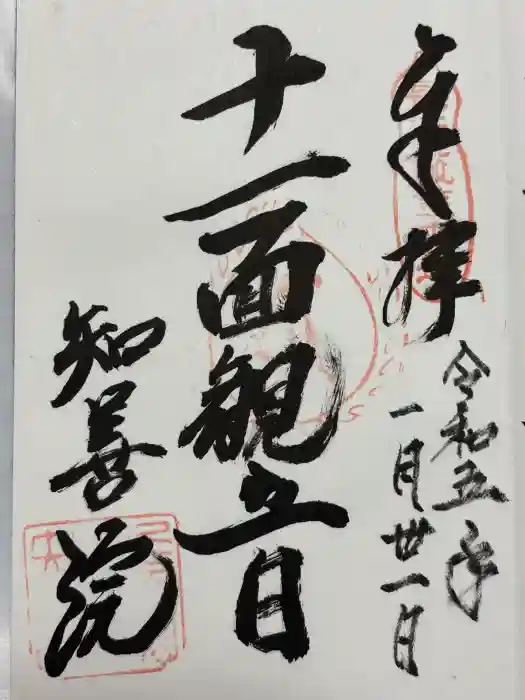 奉拝
令和五年
一月卅一日
十一面観音
知善院